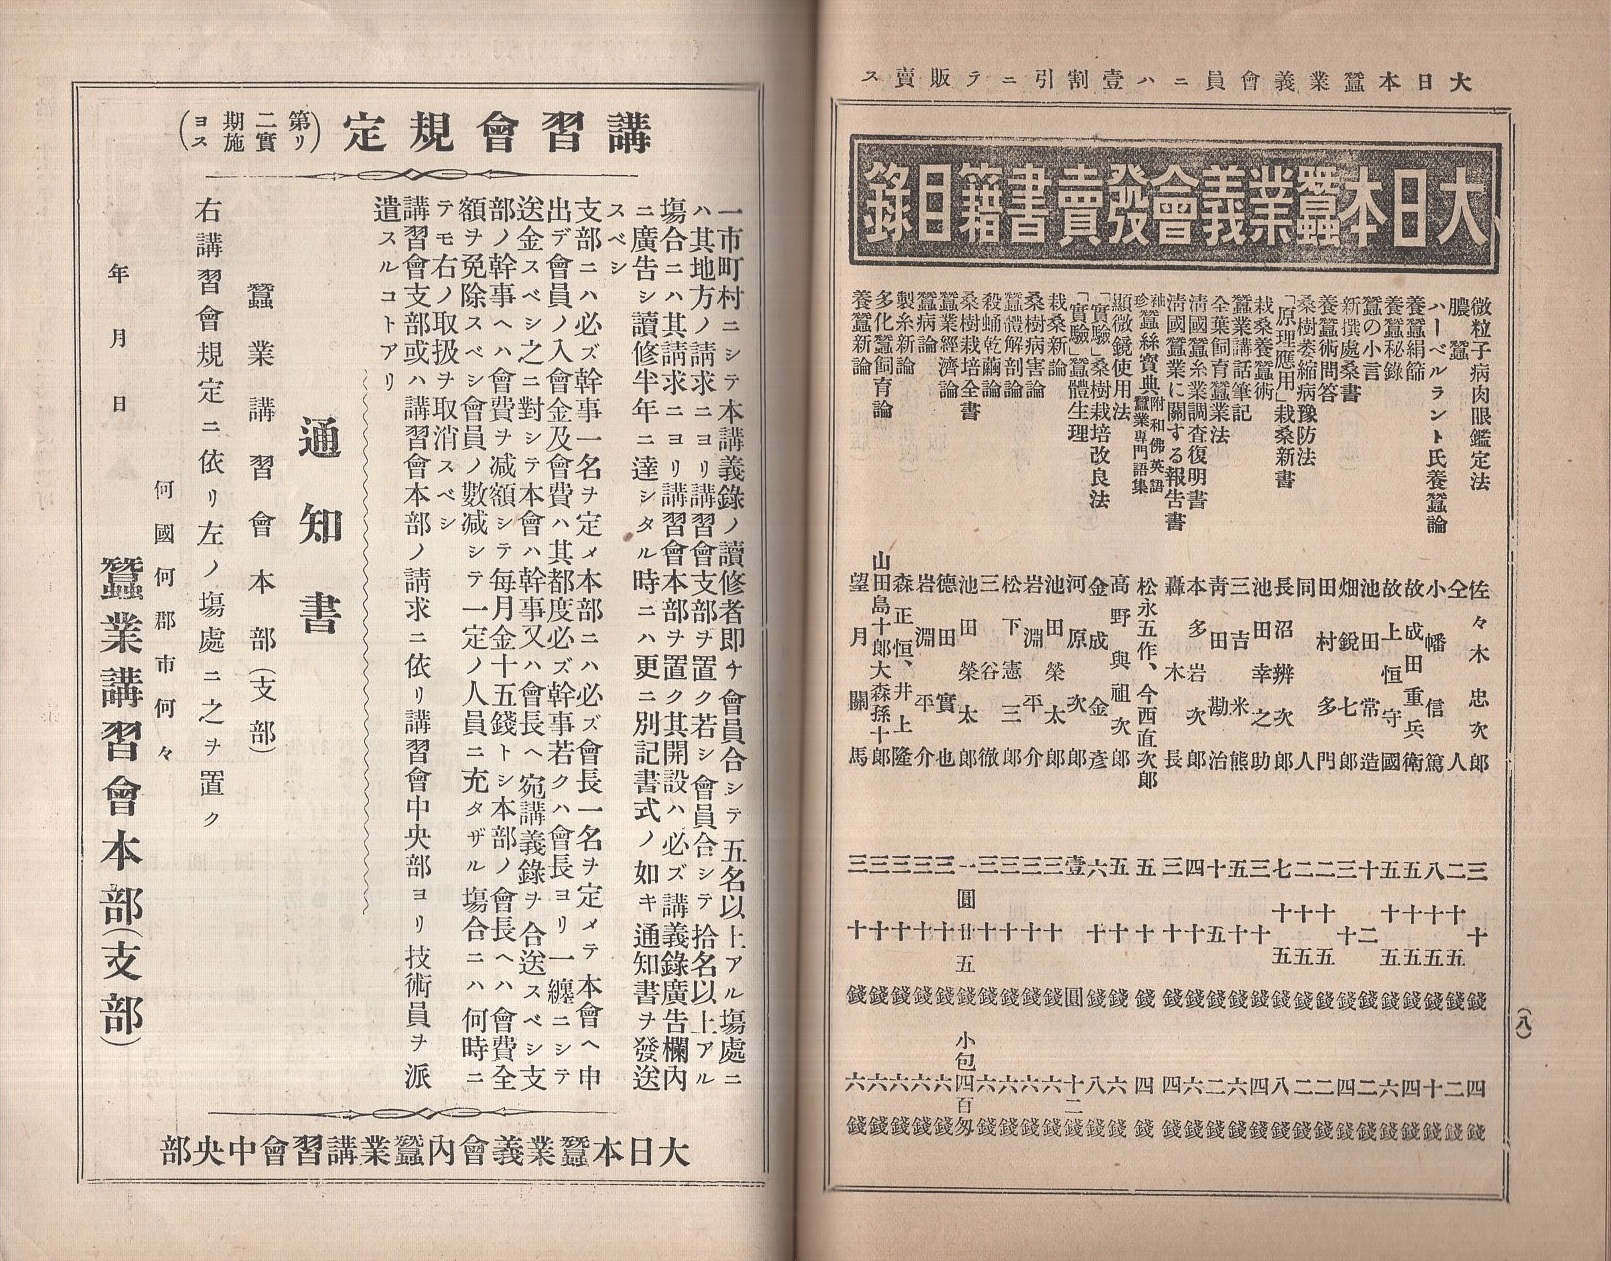 大日本蠶業義會員ニハ壹割引ニテ販賣ス
大日本蠶業義會發賣書籍目錄
微粒子病肉眼鑑定法 佐々木忠次郎 三十錢 四錢
膿蠶 仝人 二十五錢 二錢
ハーベルラント氏養蠶論 小幡信篤 八十五錢 十錢
養蠶絹篩 故成田重兵衛 五十五錢 四錢
養蠶秘錄 故上恒守國 五十五錢 六錢
蠶の小言 池田常造 十二錢 二錢
新撰處桑書 畑鋭七郎 三十錢 四錢
養蠶術問答 田村多門 二十五錢 二錢
桑樹萎縮病豫防法 同人 二十五錢 二錢
「原理應用」栽桑新書 長沼辨次郎 七十五錢 八錢
栽桑養蠶術 池田幸之助 三十錢 四錢
蠶業講話筆記 三吉米熊 五十錢 六錢
全葉飼育蠶業法 靑田勘治 十五錢 二錢
淸國蠶糸業調査復明書 本多岩次郎 四十錢 六錢
淸國蠶業に關する報告書 轟木長 三十錢 四錢
袖珍蠶絲寳典 附和佛英語蠶業專門語集 松永五作、今西直次郎 五十錢 四錢
顯微鏡使用法 高野與祖次郎 五十錢 六錢
「實驗」桑樹栽培改良法 金成金彥 六十錢 八錢
「實驗」蠶體生理 河原次郎 壹圓 十二錢
栽桑新論 池田榮太郎 三十錢 六錢
桑樹病害論 岩淵平介 三十錢 六錢
蠶體解剖論 松下憲三郎 三十錢 六錢
殺蛹乾繭論 三谷徹 三十錢 六錢
桑樹栽培全書 池田榮太郎 一圓廿五錢 小包四百匁
蠶業經濟論 德田實也 三十錢 六錢
蠶病論 岩淵平介 三十錢 六錢
製糸新論 森正恒、井上隆 三十錢 六錢
多化蠶飼育論 山田島十郎大森孫十郎 三十錢 六錢
養蠶新論 望月關馬 三十錢 六錢
(八)
講習會規定(第二期ヨリ實施ス)
一市町村ニシテ本講義錄ノ讀修者即チ會員合シテ五名以上アル塲處ニ
ハ其地方ノ請求ニヨリ講習會支部ヲ置ク若シ會員合シテ拾名以上アル
塲合ニハ其請求ニヨリ講習會本部ヲ置ク其開設ハ必ズ講義錄廣告欄內
ニ廣告シ讀修半年ニ達シタル時ニハ更ニ別記書式ノ如キ通知書ヲ發送
スベシ
支部ニハ必ズ幹事一名ヲ定メ本部ニハ必ズ會長一名ヲ定メテ本會ヘ申
出デ會員ノ入會金及會費ハ其都度必ズ幹事若クハ會長ヨリ一纏ニシテ
送金スベシ之ニ對シテ本會ハ幹事又ハ會長ヘ宛講義錄ヲ合送スベシ支
部ノ幹事ヘハ會費ヲ減額シテ每月金十五錢トシ本部ノ會長ヘハ會費全
額ヲ免除スベシ會員ノ數減シテ一定ノ人員ニ充タザル塲合ニハ何時ニ
テモ右ノ取扱ヲ取消スベシ
講習會支部或ハ講習會本部ノ請求ニ依リ講習會中央部ヨリ技術員ヲ派
遣スルコトアリ
通知書
蠶業講習會本部(支部)
右講習會規定ニ依リ左ノ塲處ニ之ヲ置ク
何國何郡市何々
年月日
蠶業講習會本部(支部)
大日本蠶業義會內蠶業講習會中央部